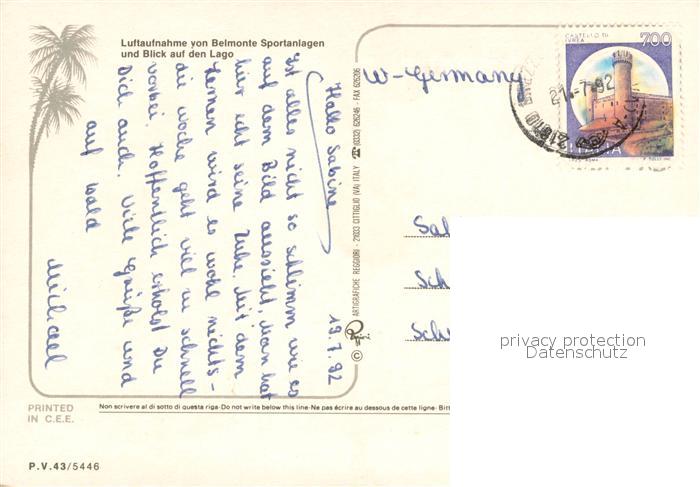 Luftaufnahme von Belmonte Sportanlagen
und Blick auf den Lago
19.7.92
Hallo Sabine
Ist alles nicht so schlimm wie es
auf dem Bild aussieht, Man hat
hier echt seine Ruhe. Mit dem
Lernen wird es wohl nichts-
die Woche geht viel zu schnell
vorbei. Hoffentlich erholst Du
Dich auch. Viele Grüße und
auf bald
Michael
ARTIGRAFICHE REGGIORI - 21033 CITTIGLIO (VA) ITALY ☎ (0332) 626245 - FAX 626206
©
W-Germany
CASTELLO DI
IVREA
700
ITALIA
21.-7.92
Sal
Sch
Schw
privacy protection
Datenschutz
PRINTED
IN C.E.E.
Non scrivere al di sotto di questa riga-Do not write below this line-Ne pas écrire au dessous de cette ligne- Bitt
P.V.43/5446